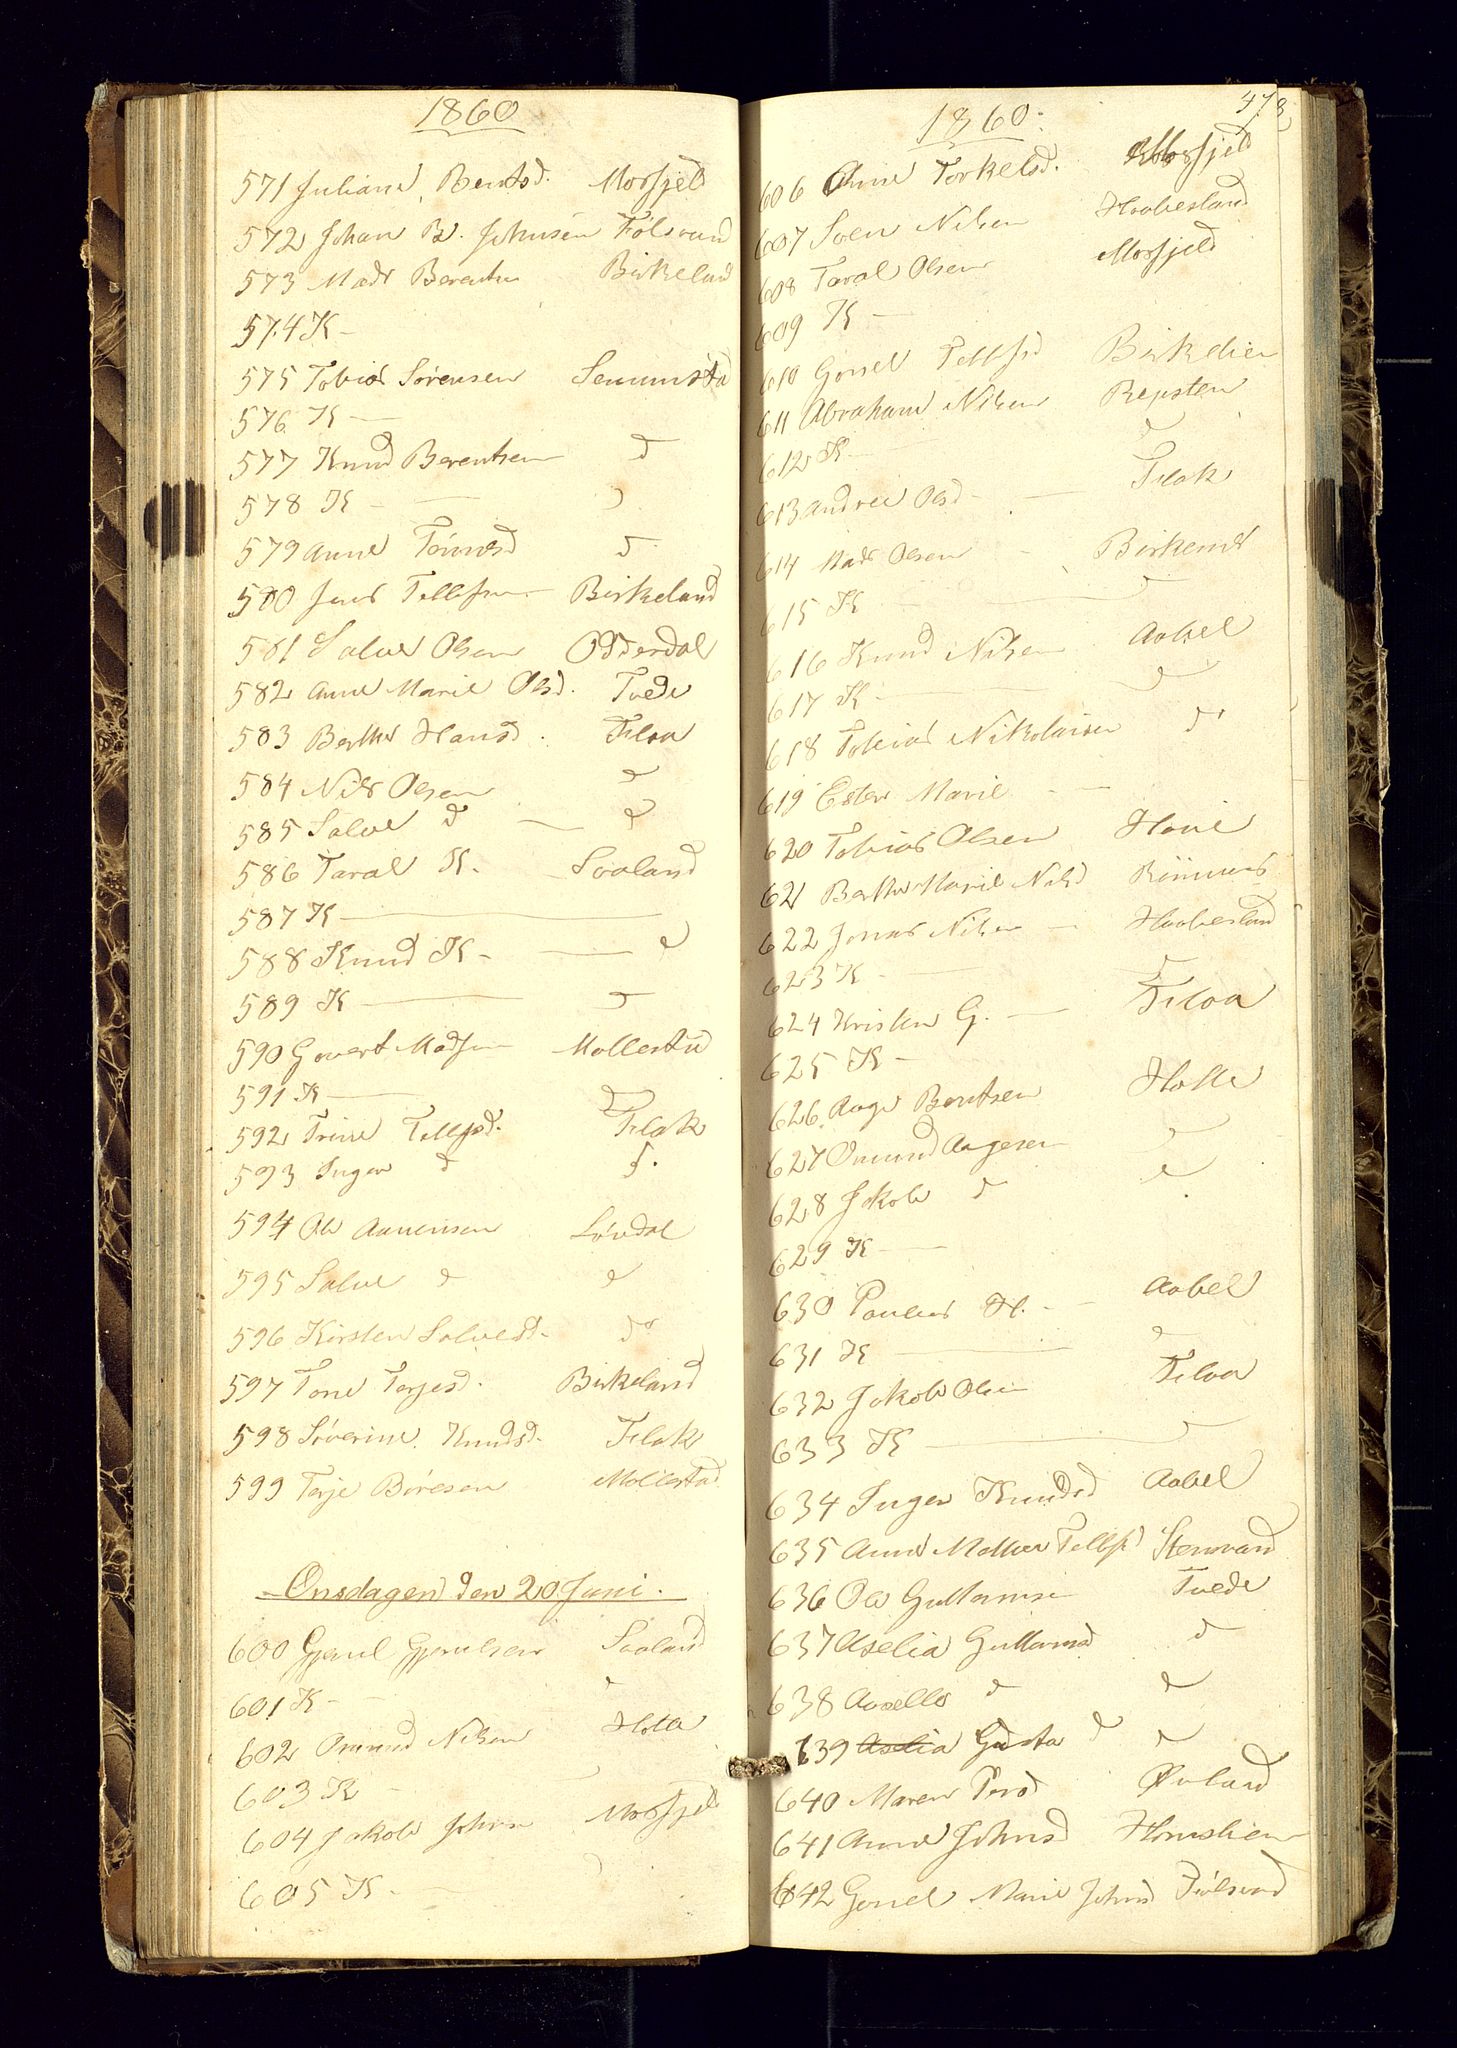 1860
571 Juliane Bentsd. Mosfjeld
572 Johan B. Johnsen Fölsvand
573 Mads Berentsen Birkeland
574 K –
575 Tobias Sörensen Senumstad
576 K —
577 Knud Berentsen d
578 K - — d
579 Anne Tönnesd d
580 Jens Tellefsen Birkeland
581 Salve Olsen Odderdal
582 Anne Marie Olsd. Tvede
583 Berthe Hansd. Flaa
584 Nils Olsen d
585 Salve d — d
586 Taral K. Saaland
587 K —
588 Knud K - — d
589 K — d
590 Govert Madsen Mollestad
591 K — d
592 Trine Tellefsd. Flak
593 Inger d d.
594 Ole Aanensen Lövdal
595 Salve d d
596 Kirsten Salvesd. do
597 Tone Terjesd. Birkeland
598 Söverine Knudsd. Flak
599 Terje Böresen Mollestad
Onsdagen den 20 Juni.
600 Gjeruel Gjeruelsen Saaland
601 K - d
602 Omund Nilsen Holla
603 K -
604 Jakob Johnsen Mosfjeld
605 K. — d
478
1860.
606 Anne Torkelsd. Mosfjeld
607 Sven Nilsen Haabesland
608 Taral Olsen Mosfjeld
609 K —
610 Gonel Tellefsd Birkelien
611 Abraham Nilsen Repsten
612 K — d
613 Andrea Olsd - — Flak
614 Mads Olsen - Birkenes
615 K — d
616 Knud Nilsen Aabel
617 K - — d
618 Tobias Nikolaisen do
619 Ester Marie - -
620 Tobias Olsen Hovie
621 Berthe Marie Nilsd Rönnenes
622 Jonas Nilsen — Haabesland
623 K - — d
624 Kristen G. — Flaa
625 K -
626 Aage Bentsen Holle
627 Omund Aagesen d
628 Jakob d d
629 K —
630 Paulus H. - — Aabel
631 K — d
632 Jakob Olsen Flaa
633 K — d
634 Inger Knudsd Aabel
635 Anne Mathea Tellefsd Stensvand
636 Ole Guttormsen Tvede
637 Aselia Guttormsd d
638 d d
639 Gusta d d
640 Maren Persd Øvland
641 Anne Johnsd Hornslien
642 Gonel Marie Johnsd Fiölsvand